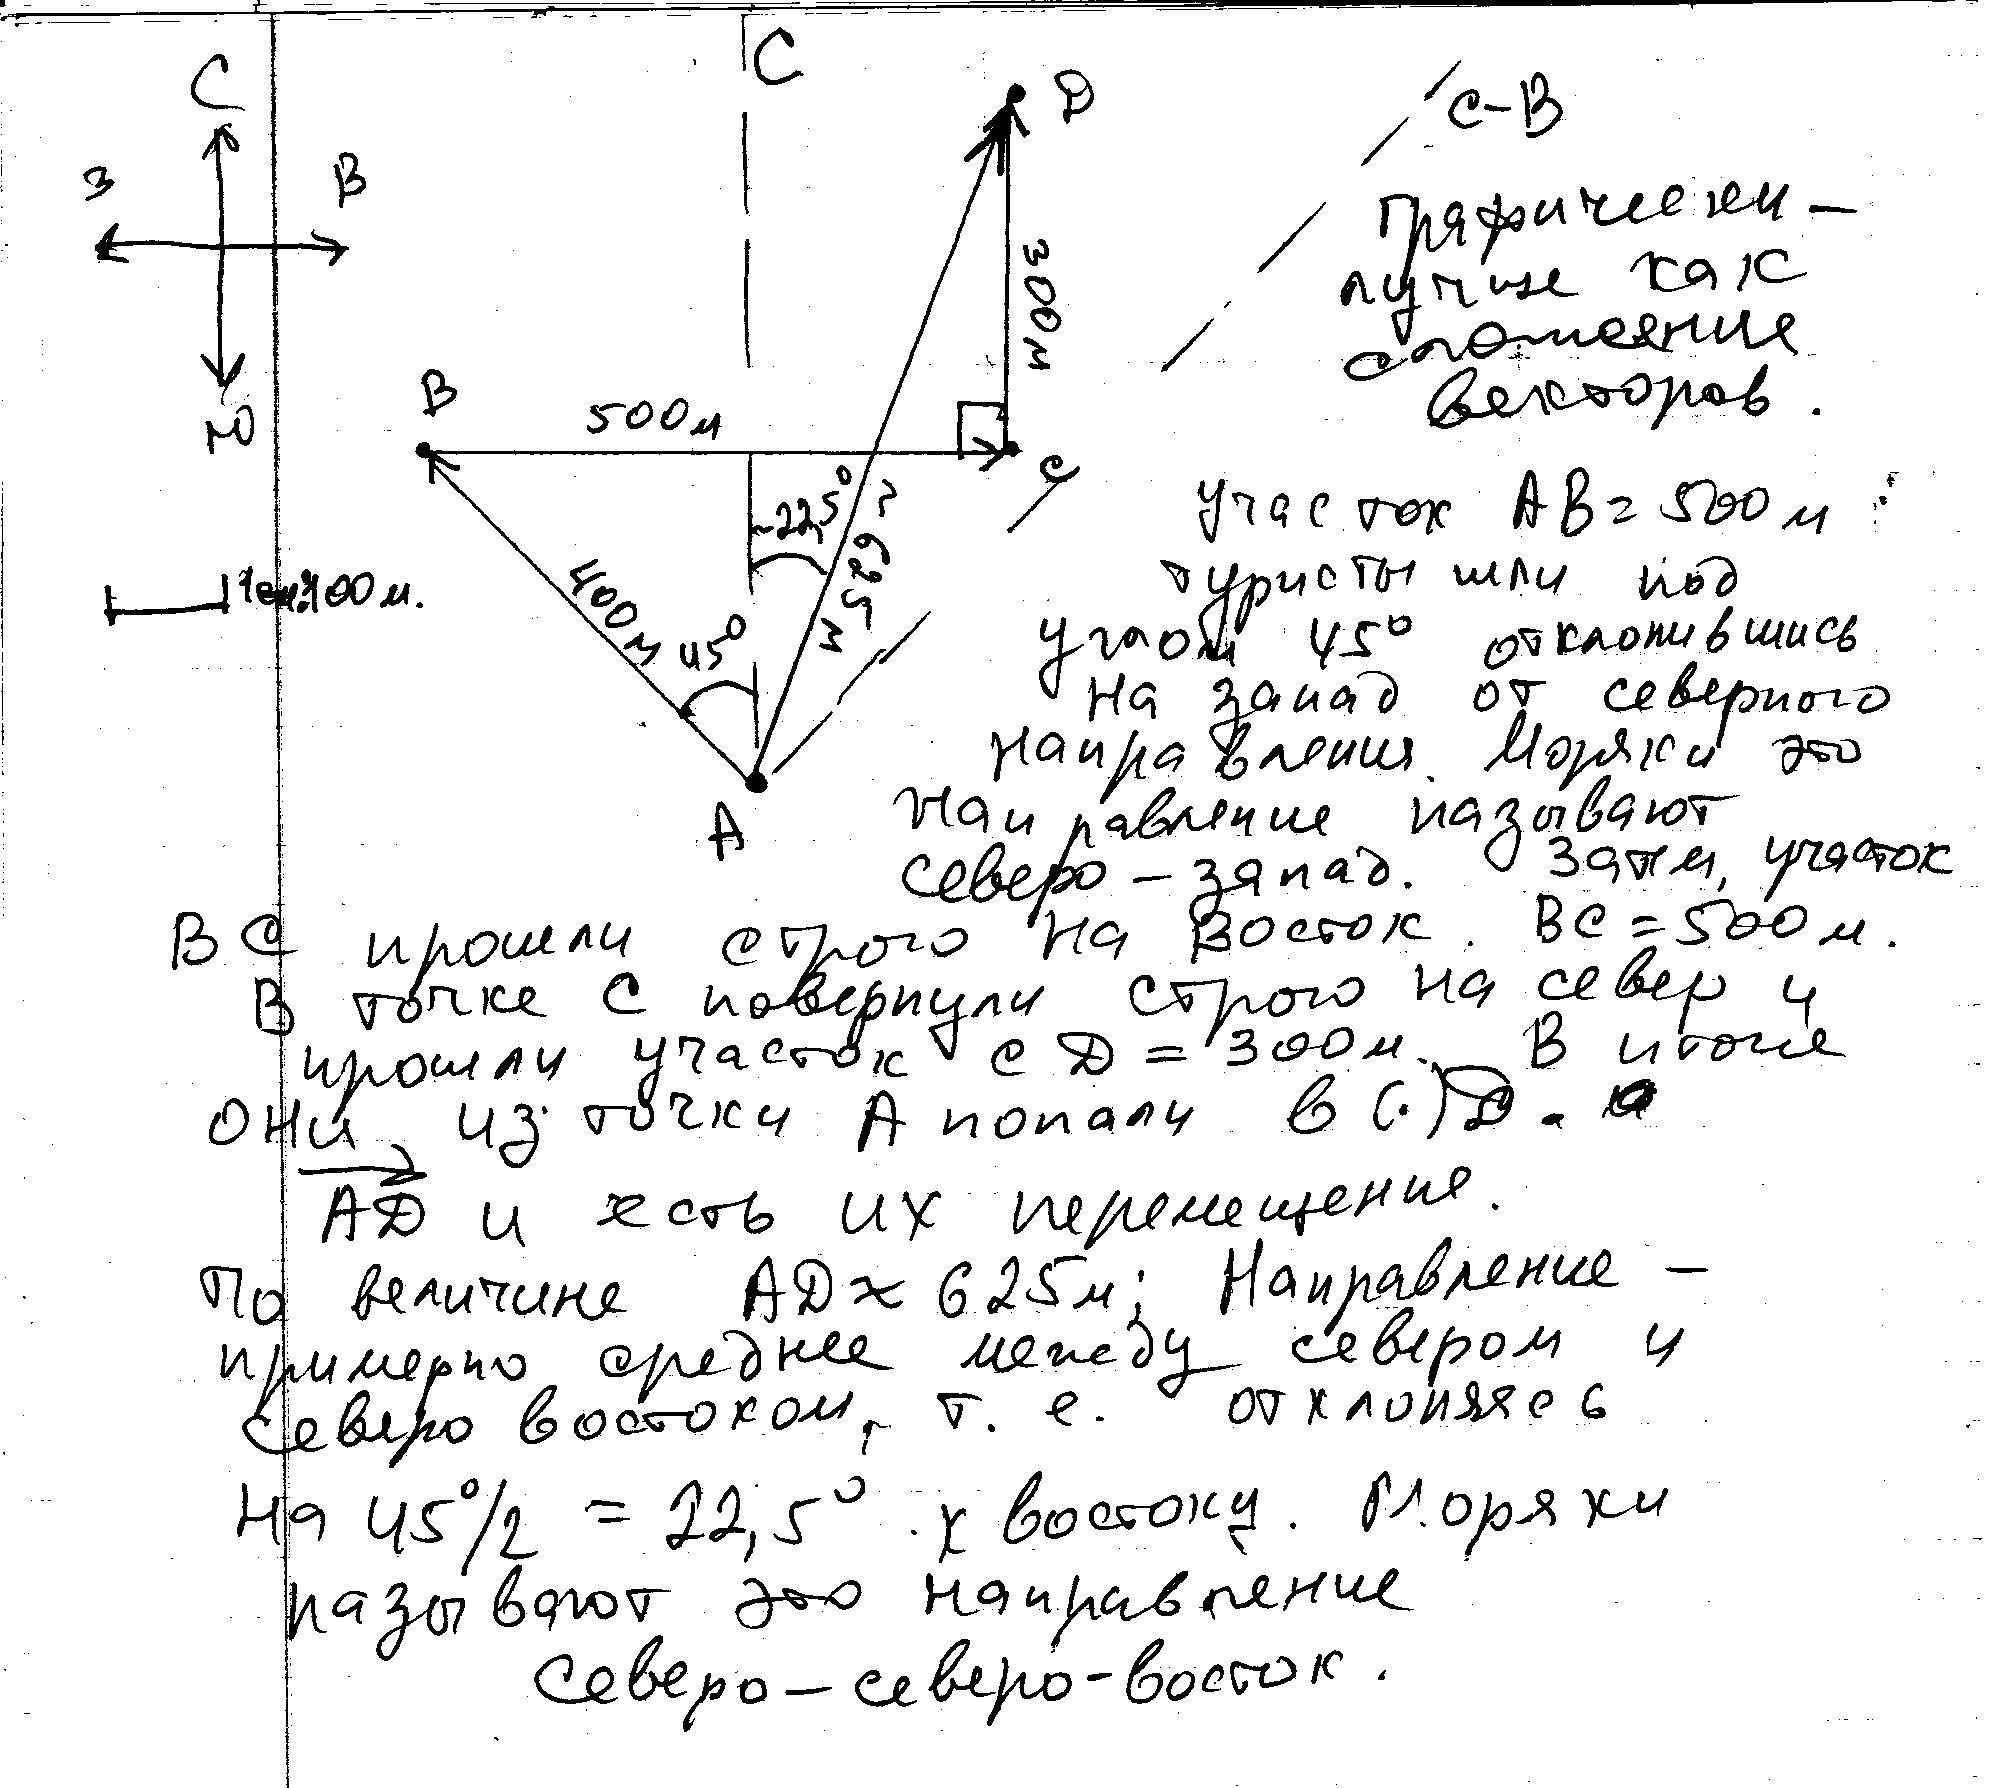 С
З
В
Ю
1см=100м.
С
D
С-В
300м
В
500м
С
~22,5°
≈ 625м
400м
45°
А
Графически -
лучше как
сложение
векторов.
участок АВ=500м
туристы шли под
углом 45° отклонившись
на запад от северного
направления. Моряки это
направление называют
северо-запад. Затем, участок
ВС прошли строго на восток. ВС=500м.
В точке С повернули строго на север и
прошли участок СD=300м. В итоге
они из точки А попали в (·)D.
AD и есть их перемещение.
По величине AD≈625м; Направление -
примерно среднее между севером и
северо востоком, т. е. отклоняясь
на 45°/2 = 22,5° к востоку. Моряки
называют это направление
северо-северо-восток.